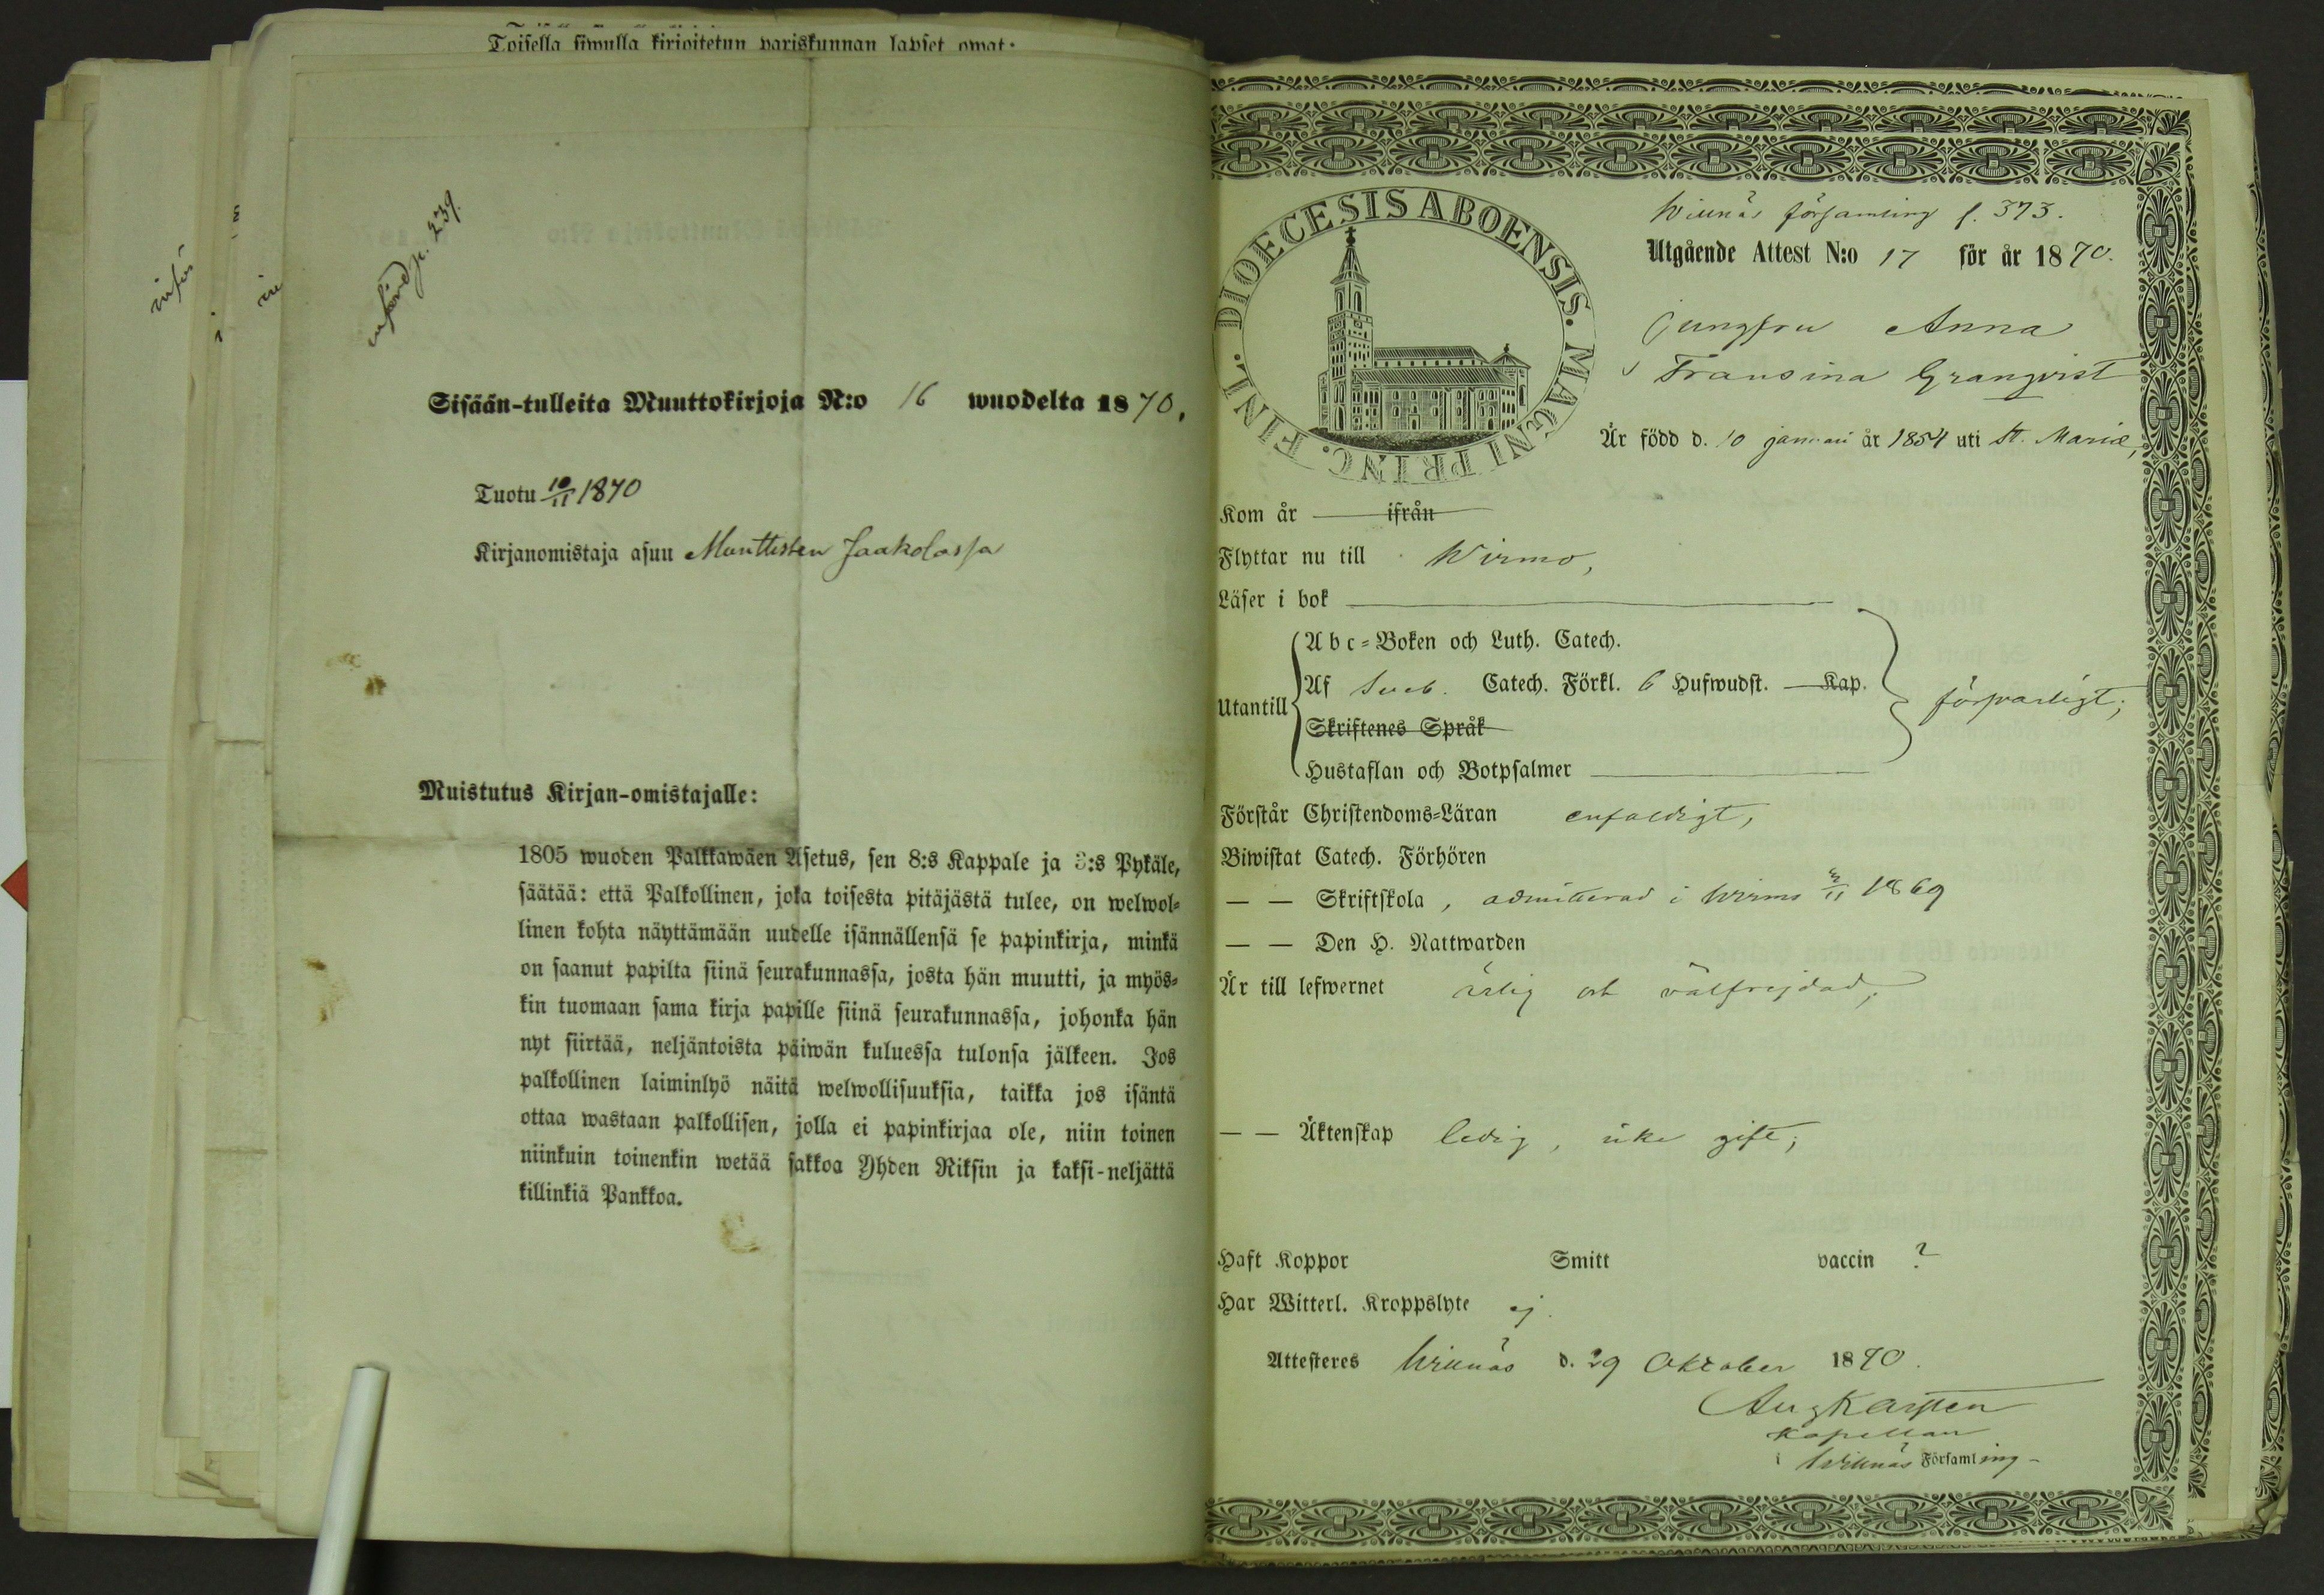 Toisella siwulla kirjoitetun pariskunnan lapset owat:
införd p. 239.
Sisään-tulleita Muuttokirjoja N:o 16 wuodelta 1870.
Tuotu 10/11 1870
Kirjanomistaja asuu Munttisten Jaakolassa
Muistutus Kirjan-omistajalle:
1805 wuoden Palkkawäen Asetus, sen 8:s Kappale ja 3:s Pykäle,
säätää: että Palkollinen, joka toisesta pitäjästä tulee, on welwol-
linen kohta näyttämään uudelle isännällensä se papinkirja, minkä
on saanut papilta siinä seurakunnassa, josta hän muutti, ja myös-
kin tuomaan sama kirja papille siinä seurakunnassa, johonka hän
nyt siirtää, neljäntoista päiwän kuluessa tulonsa jälkeen. Jos
palkollinen laiminlyö näitä welwollisuuksia, taikka jos isäntä
ottaa wastaan palkollisen, jolla ei papinkirjaa ole, niin toinen
niinkuin toinenkin wetää sakkoa Yhden Riksin ja kaksi-neljättä
killinkiä Pankkoa.
DIOECESIS ABOENSIS. MAGNI PRINC. FINL.
Willnäs församling f. 373.
Utgående Attest N:o 17 för år 1870.
Jungfru Anna
Fransina Granqvist
Är född d. 10 januari år 1854 uti St. Mariæ,
Kom år ifrån
Flyttar nu till Wirmo,
Läser i bok
Utantill
Abc-Boken och Luth. Catech.
Af Sveb. Catech. Förkl. 6 Hufwudst. Kap.
Skriftenes Språk
Hustaflan och Botpsalmer
försvarligt;
Förstår Christendoms-Läran enfaldigt,
Biwistat Catech. Förhören
— — Skriftskola, admitterad i Wirmo 1869
— — Den H. Nattwarden
Är till lefwernet ärlig och välfrejdad;
— — Äktenskap ledig, icke gift;
Haft Koppor Smitt vaccin ?
Har Witterl. Kroppslyte ej.
Attesteres Willnäs d. 29 Oktober 1870.
Aug Karsten
Kapellan
i Willnäs Församling